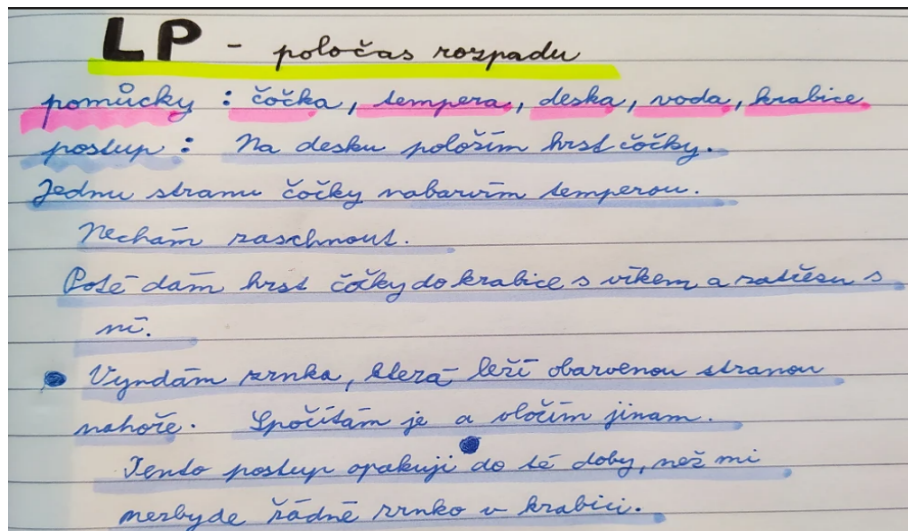 LP - poločas rozpadu
pomůcky : čočka, tempera, deska, voda, krabice
postup : Na desku položím hrst čočky.
Jednu stranu čočky nabarvím temperou.
Nechám zaschnout.
Poté dám hrst čočky do krabice s víkem a zatřesu s
ní.
Vyndám zrnka, která leží obarvenou stranou
nahoře. Spočítám je a vložím jinam.
Tento postup opakuji do té doby, než mi
nezbyde žádné zrnko v krabici.